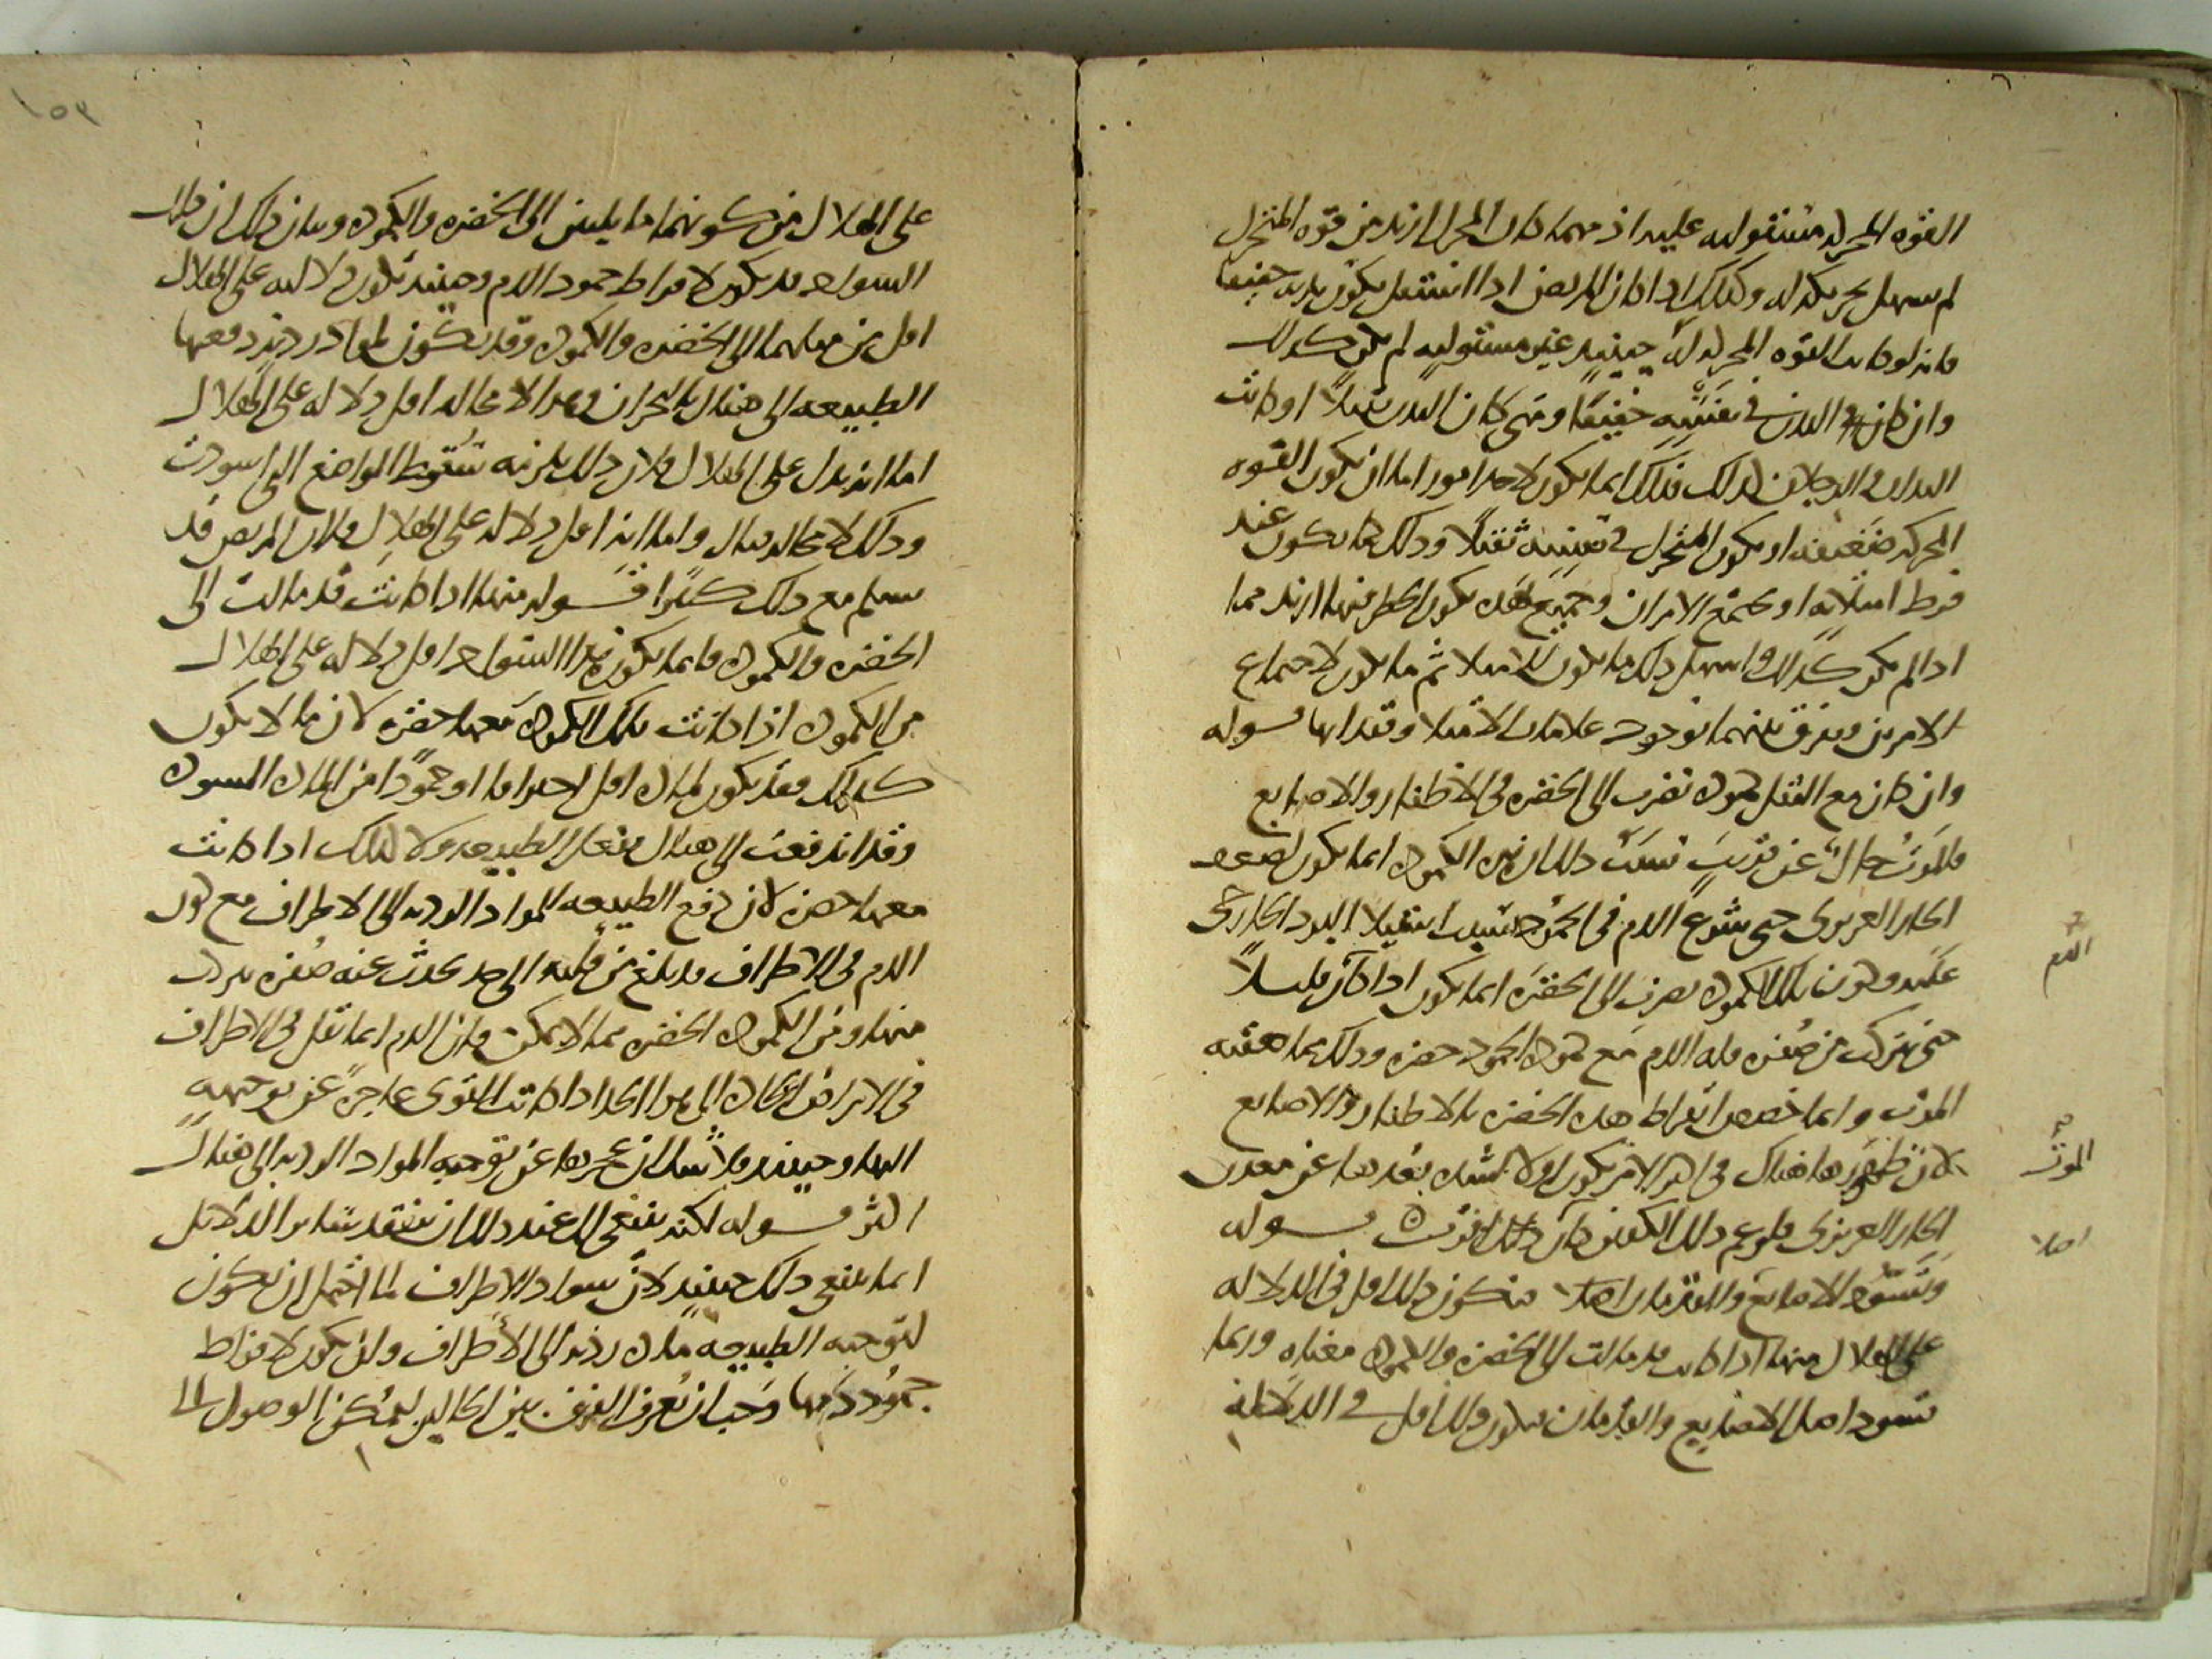 القوه المحركه مستوليه عليه اذ مهما كان المحرك ازيد من قوه المتحرك
لم يسهل تحريكه له وكذلك اذا كان المريض اذا انتقل يكون بدنه خفيفا
فانه لو كانت القوه المحركه له حينيذ غير مستوليه لم يكن كذلك
وان كان البدن في نفسه خفيفا ومتى كان البدن ثقيلا او كانت
اليدان والرجلان كذلك فذلك انما يكون لاحد امور اما ان تكون القوه
المحركه ضعيفه او يكون المتحرك في نفسه ثقيلا وذلك كما يكون عند
فرط امتلائه او يجتمع الامران وجميع هذه يكون الخطر فيها ازيد مما
اذا لم يكن كذلك واسهل ذلك ما يكون للامتلا ثم ما يكون لاجتماع
الامرين ويفرق بينهما بوجود علامات الامتلا وفقدانها قوله
وان كان مع الثقل كموده تضرب الى الخضره في الاظفار والاصابع
فالموت حال عن قريب سبب ذلك ان هذه الكموده انما تكون لضعف
الحار الغريزي حتى يشرع الدم في الجمود بسبب استيلا البرد الخارجي
عليه وكون تلك الكموده تضرب الى الخضره انما يكون اذا كان قليلا
حتى يتركب من صفره قله الدم مع كموده الجمود خضره وذلك مما يصحبه
الموت وانما خصص ابقراط هذه الخضره بالاظفار والاصابع
لان ظهورها هناك في اكثر الامر يكون اولا لشده بعدها عن معدن
الحار الغريزي فلو عم ذلك الكفين كان ذلك اقوى قوله
وتسود الاصابع والقدمان اصلا فيكون ذلك اقل في الدلاله
على الهلاك منها اذا كانت قد مالت الى الخضره والكموده معناه وربما
تسود اصلا الاصابع والقدمان فيكون ذلك اقل في الدلاله
الدم
الموت
اصلا
١٥٣
على الهلاك من كونهما مايلين الى الخضره والكموده وبيان ذلك ان ذلك
السواد قد يكون لافراط جمود الدم وحينيذ تكون دلالته على الهلاك
اقل من ميلهما الى الخضره والكموده وقد يكون لمواد رديه دفعها
الطبيعه الى هناك بالبحران وهذا لا محاله اقل دلاله على الهلاك
اما انه يدل على الهلاك فلان ذلك يلزمه سقوط المواضع التي اسودت
وذلك لا محاله قتال واما انه اقل دلاله على الهلاك فلان المريض قد
يسلم مع ذلك كثيرا قوله منها اذا كانت قد مالت الى
الخضره والكموده وانما يكون هذا السواد اقل دلاله على الهلاك
من الكموده اذا كانت تلك الكموده معها خضره لان ما لا يكون
كذلك فقد يكون لماده اقل احتراقا او جمودا من الماده المسوده
وقد اندفعت الى هناك بفعل الطبيعه ولا كذلك اذا كانت
معها خضره لان دفع الطبيعه للمواد الرديه الى الاطراف مع كون
الدم في الاطراف قد بلغ من قلته الى حد يحدث عنه صفره يتركب
منها ومن الكموده الخضره مما لا يمكن فان الدم انما يقل في الاطراف
في الامراض الحاده الى هذا الحد اذا كانت القوى عاجزه عن توجيهه
اليها وحينيذ فلا شك ان عجزها عن توجيه المواد الرديه الى هناك
اكثر قوله لكنه ينبغي لك عند ذلك ان تتفقد سائر الدلائل
انما ينبغي ذلك حينيذ لان سواد الاطراف لما احتمل ان يكون
لتوجيه الطبيعه ماده رديه الى الاطراف ولان يكون لافراط
جمود دمها وجب ان يعرف الفرق بين الحالين ليمكن الوصول الى